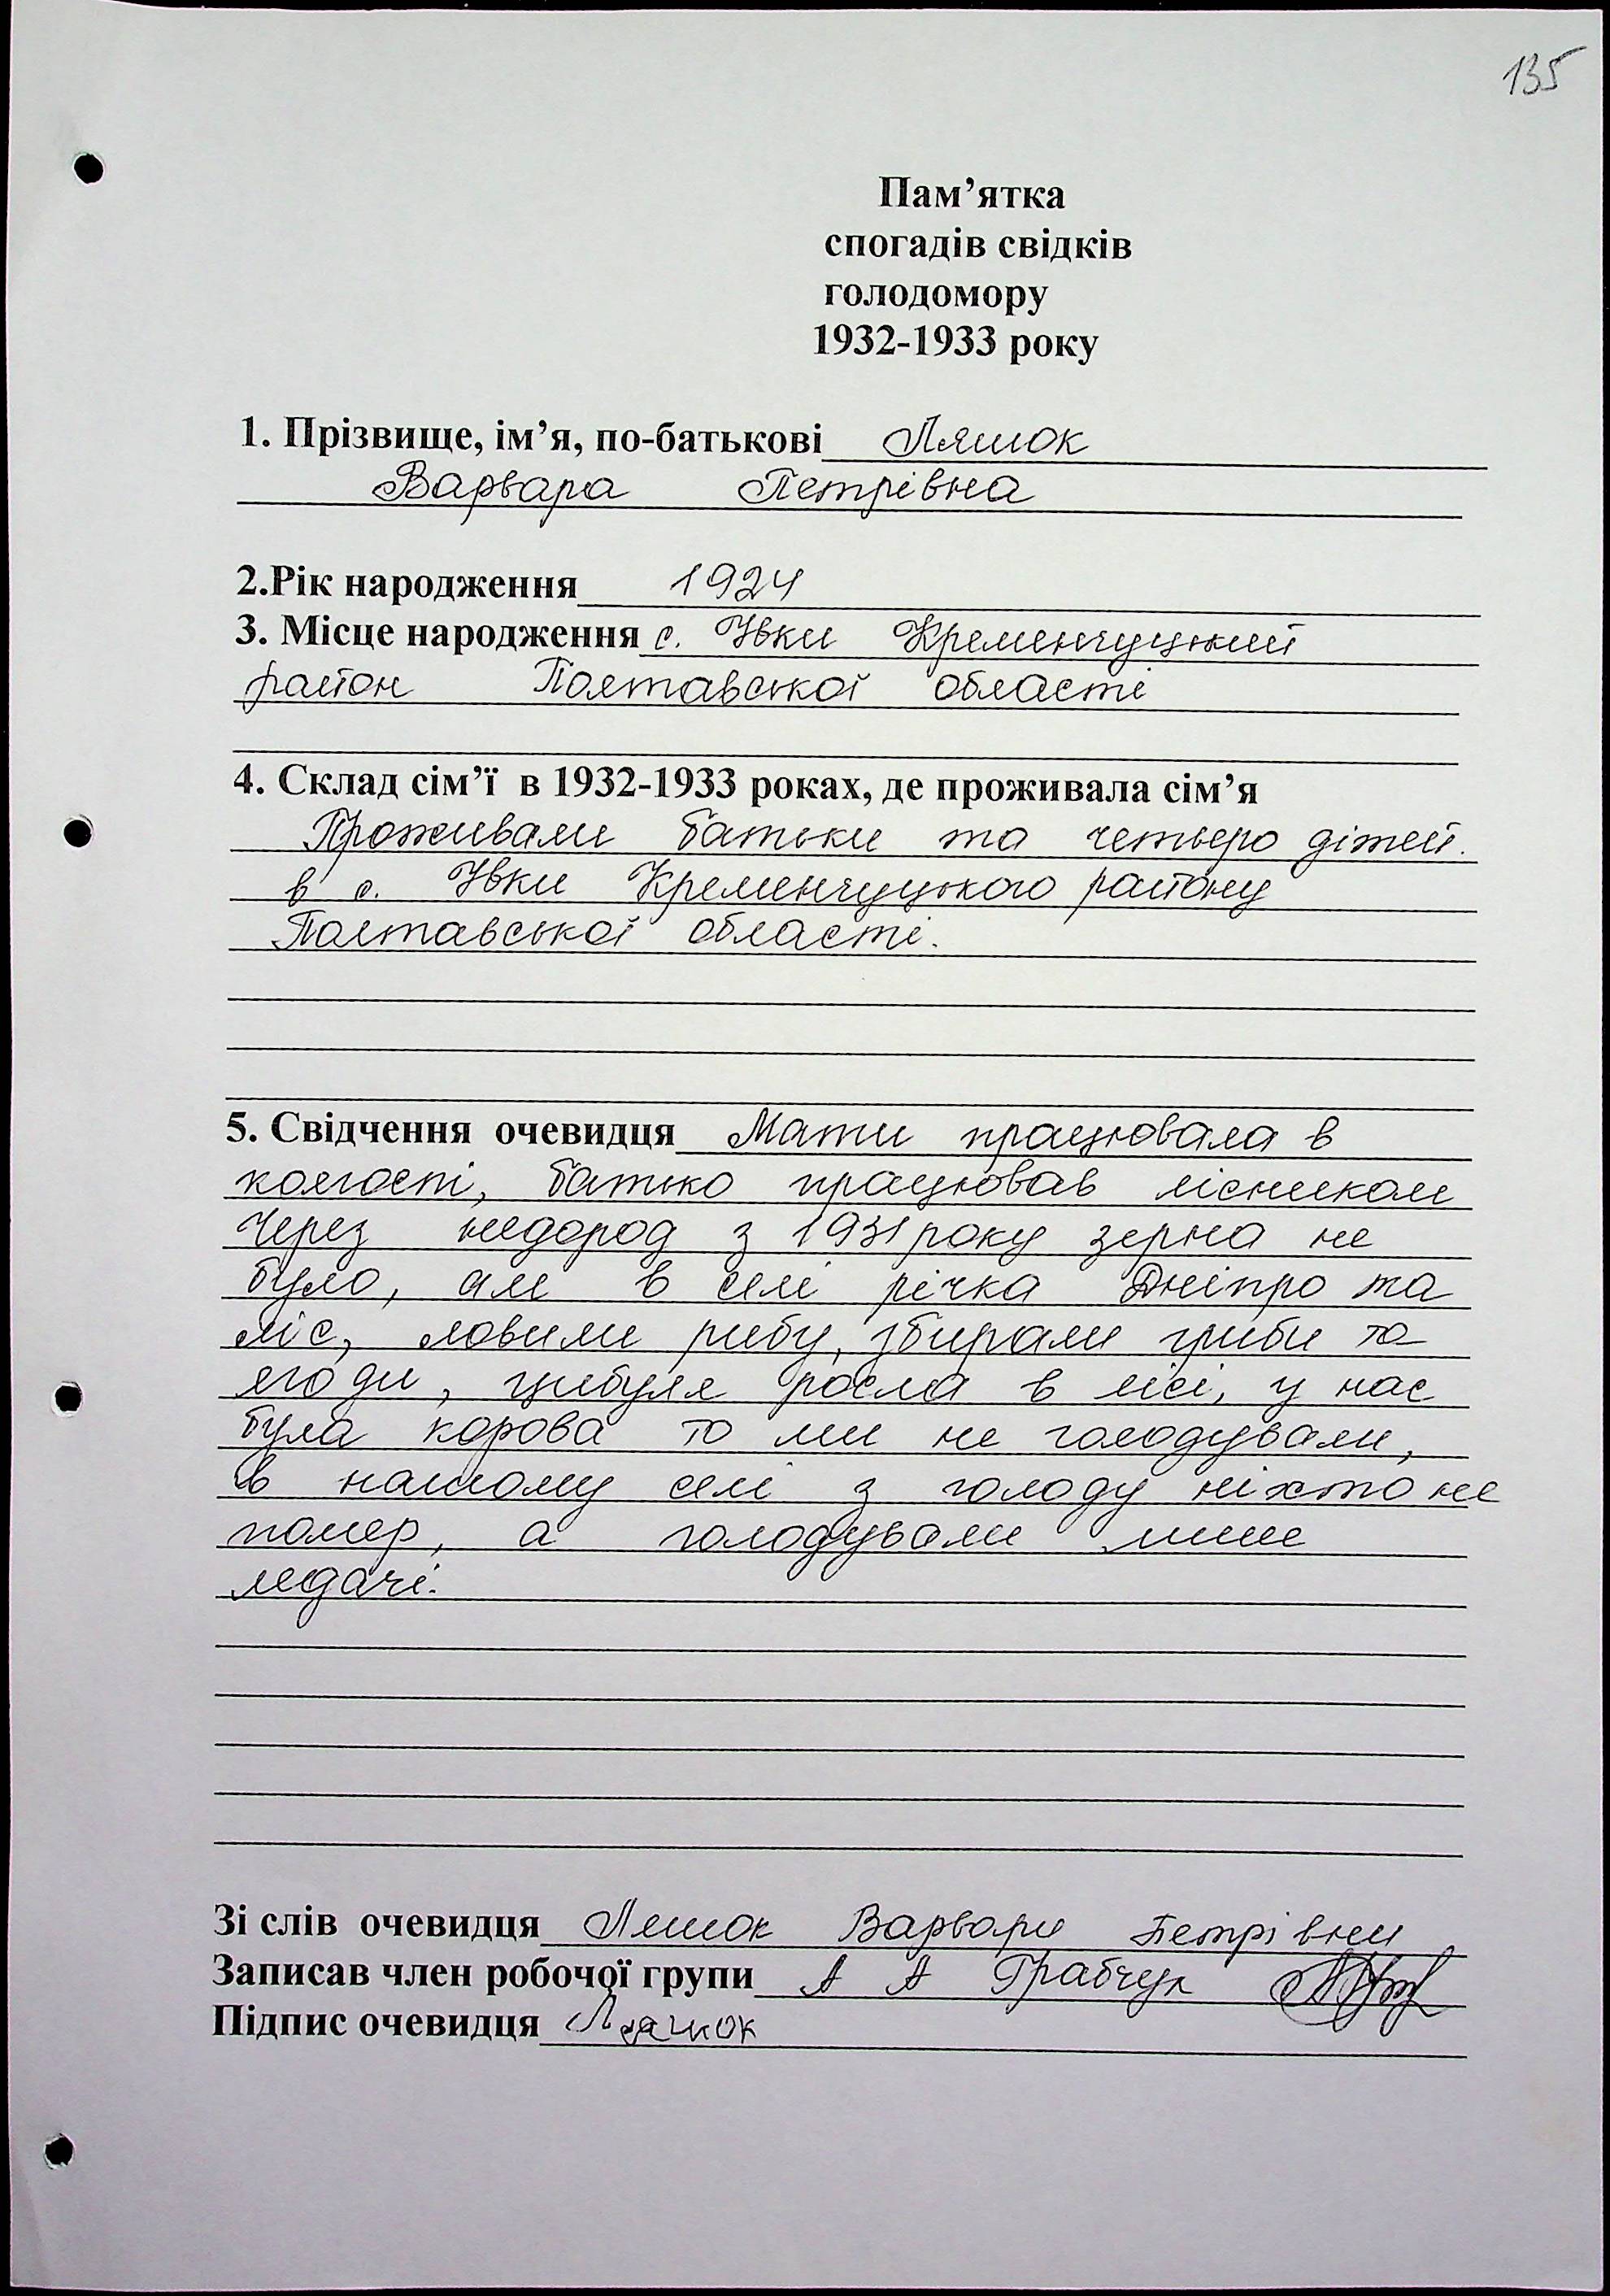 135
Пам’ятка
спогадів свідків
голодомору
1932-1933 року
1. Прізвище, ім’я, по-батькові Ляшок
Варвара Петрівна
2.Рік народження 1924
3. Місце народження с. Увки Кременчуцький
район Полтавської області
4. Склад сім’ї в 1932-1933 роках, де проживала сім’я
Проживали батьки та четверо дітей.
в с. Увки Кременчуцького району
Полтавської області.
5. Свідчення очевидця Мати працювала в
колгоспі, батько працював лісником
Через недород з 1931 року зерна не
було, але в селі річка Дніпро та
ліс, ловили рибу, збирали гриби та
ягоди, цибуля росла в лісі, у нас
була корова то ми не голодували,
в нашому селі з голоду ніхто не
помер, а голодували лише
ледачі.
Зі слів очевидця Ляшок Варвари Петрівни
Записав член робочої групи А А Грабчук
Підпис очевидця Ляшок